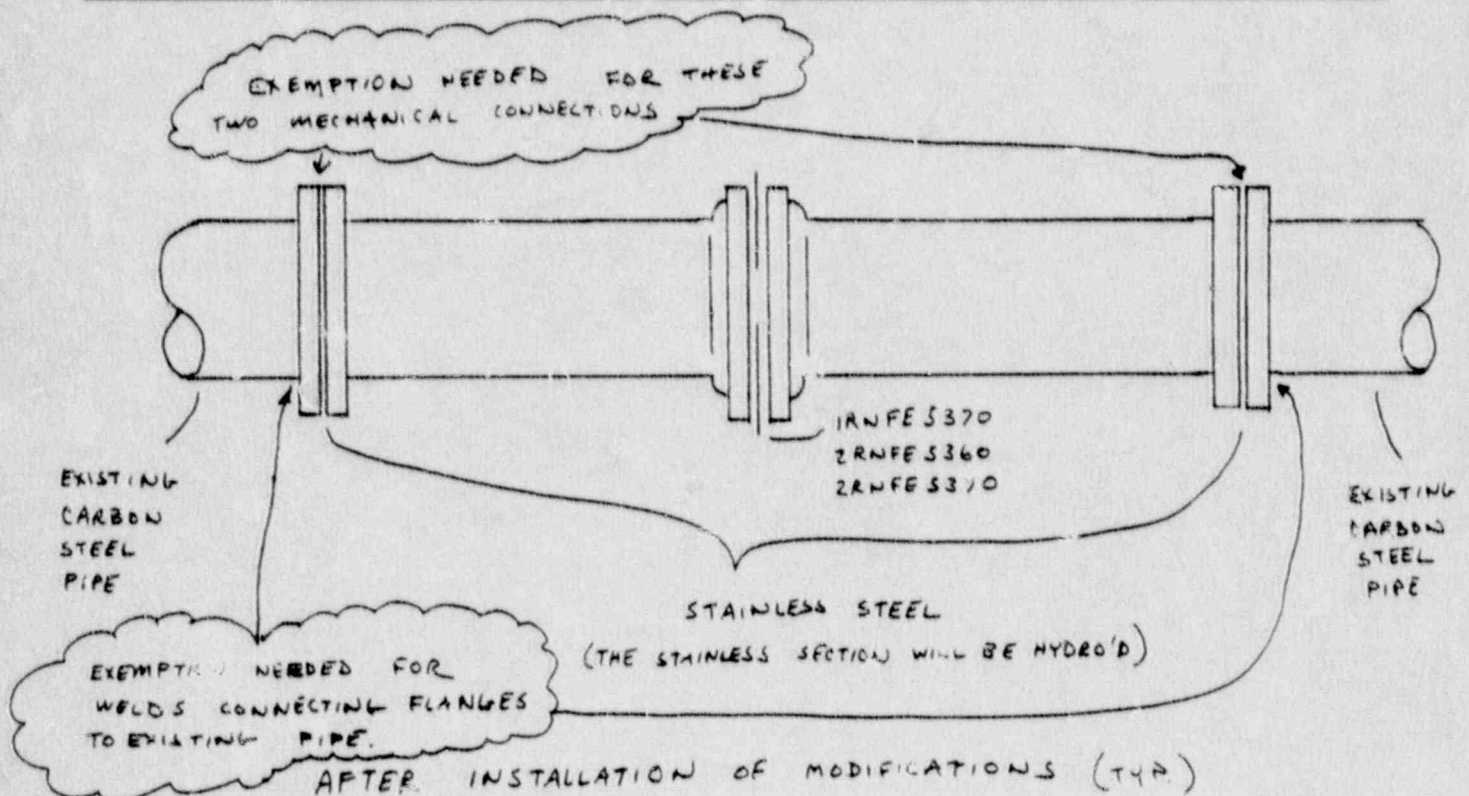 EXEMPTION NEEDED FOR THESE
TWO MECHANICAL CONNECTIONS
1RNFE5370
2RNFE5360
2RNFE5370
EXISTING
CARBON
STEEL
PIPE
EXISTING
CARBON
STEEL
PIPE
STAINLESS STEEL
(THE STAINLESS SECTION WILL BE HYDRO'D)
NEEDED FOR
WELDS CONNECTING FLANGES
TO EXISTING PIPE.
AFTER INSTALLATION OF MODIFICATIONS (TYP.)